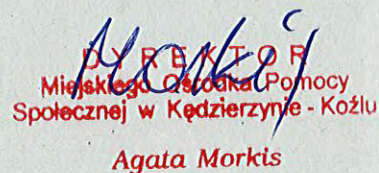 DYREKTOR
Miejskiego Ośrodka Pomocy
Społecznej w Kędzierzynie - Koźlu
Morkis
Agata Morkis